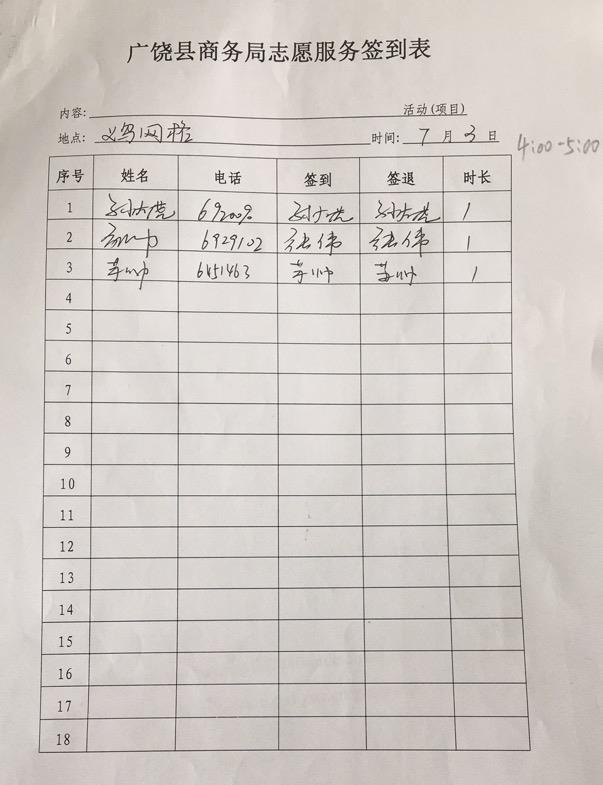 广饶县商务局志愿服务签到表
内容: 活动(项目)
地点: 义乌网格 时间: 7 月 3 日 4:00-5:00
序号 姓名 电话 签到 签退 时长
1 1
2 6929102 张伟 张伟 1
3 苏帅 6451463 苏帅 苏帅 1
4
5
6
7
8
9
10
11
12
13
14
15
16
17
18